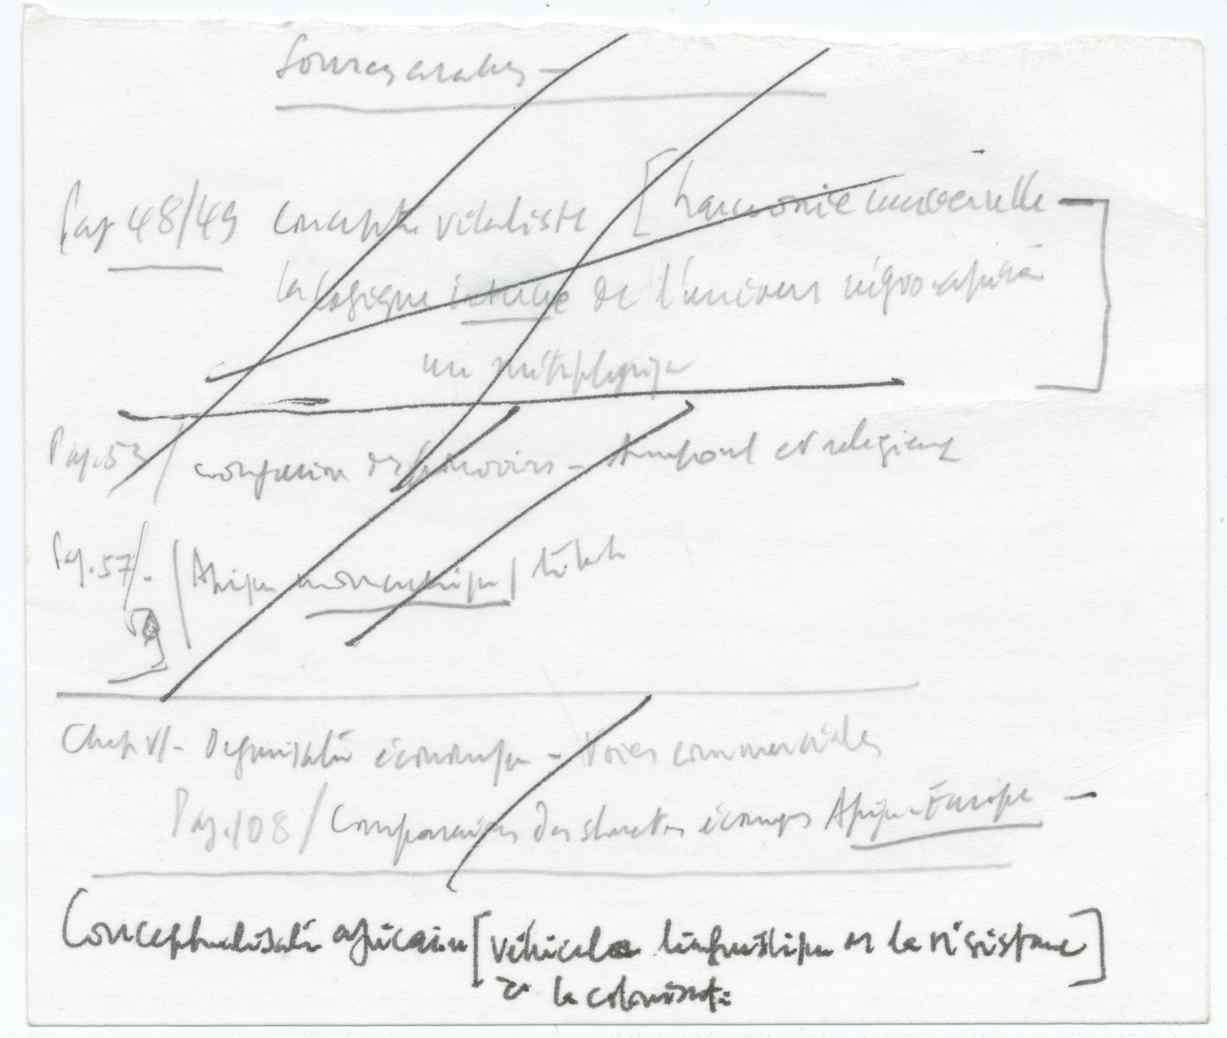 Sources arabes –
Pag 48/49 conception vitaliste [harmonie universelle –
la logique interne de l'univers négro-africain
un métaphysique
Pag. 53/ confusion des pouvoirs – temporel et religieux
Pag. 57/. /Afrique monarchique/
Chap VI – Organisation économique – Voies commerciales
Pag. 108 / Comparaison des structures économiques Afrique-Europe –
Conceptualisation africaine [véhicule linguistique et la résistance]
à la colonisation